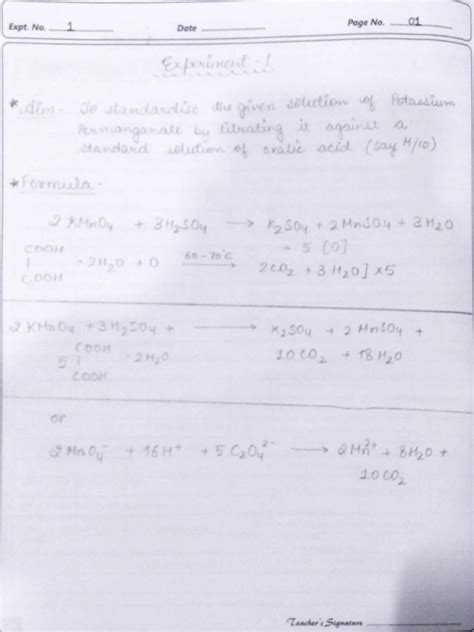 Expt. No. 1 Date Page No. 01
Experiment - 1
* Aim - To standardise the given solution of Potassium
Permanganate by titrating it against a
standard solution of oxalic acid (say M/10)
* Formula -
2 KMnO₄ + 3H₂SO₄ → K₂SO₄ + 2 MnSO₄ + 3H₂O
+ 5 [O]
COOH
| · 2H₂O + O 60-70°C → 2CO₂ + 3H₂O] x5
COOH
2 KMnO₄ + 3H₂SO₄ + → K₂SO₄ + 2 MnSO₄ +
COOH
5 | · 2H₂O 10 CO₂ + 18H₂O
COOH
or
2 MnO₄⁻ + 16H⁺ + 5 C₂O₄²⁻ → 2Mn²⁺ + 8H₂O +
10CO₂
Teacher's Signature